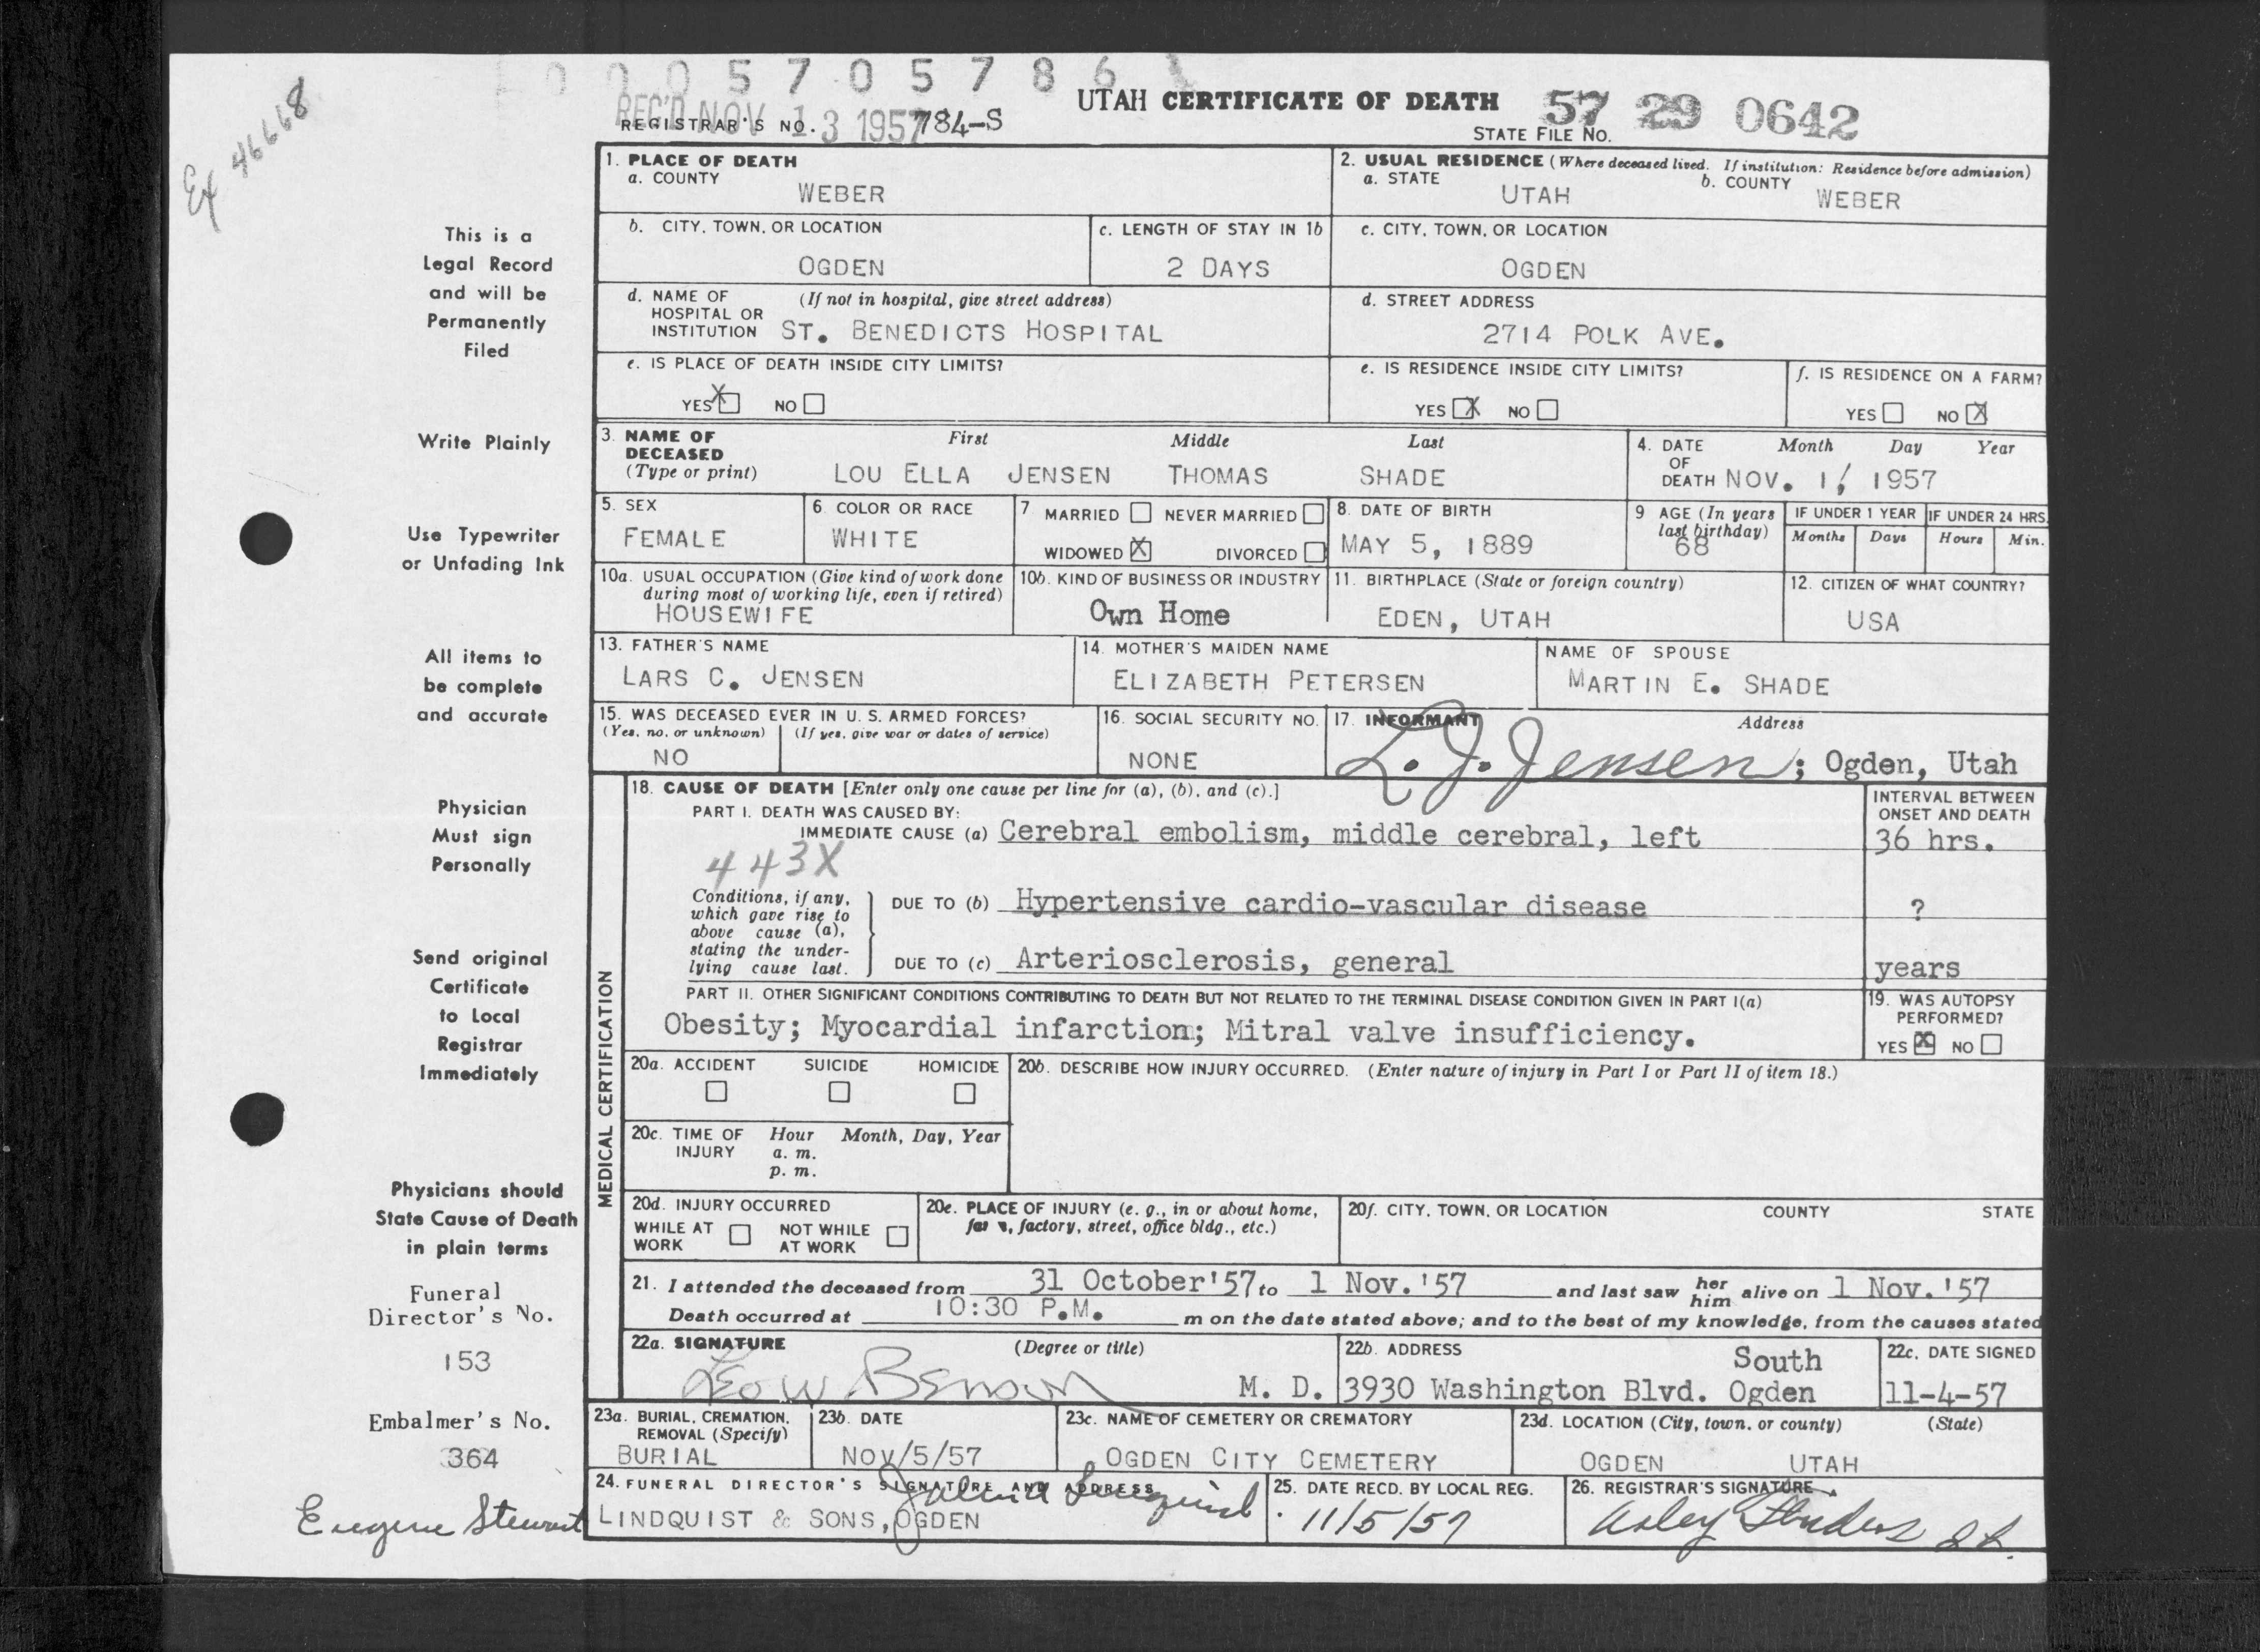 0005705786
Ex 46668
REC'D NOV 13 1957
REGISTRAR'S NO. 784-S
UTAH CERTIFICATE OF DEATH
57 29 0642
STATE FILE NO.
This is a
Legal Record
and will be
Permanently
Filed
Write Plainly
Use Typewriter
or Unfading Ink
All items to
be complete
and accurate
Physician
Must sign
Personally
Send original
Certificate
to Local
Registrar
Immediately
Physicians should
State Cause of Death
in plain terms
Funeral
Director's No.
153
Embalmer's No.
364
Eugene Stewart
1. PLACE OF DEATH
a. COUNTY
WEBER
2. USUAL RESIDENCE (Where deceased lived. If institution: Residence before admission)
a. STATE
UTAH
b. COUNTY
WEBER
b. CITY, TOWN, OR LOCATION
OGDEN
c. LENGTH OF STAY IN 1b
2 DAYS
c. CITY, TOWN, OR LOCATION
OGDEN
d. NAME OF HOSPITAL OR INSTITUTION (If not in hospital, give street address)
ST. BENEDICTS HOSPITAL
d. STREET ADDRESS
2714 POLK AVE.
e. IS PLACE OF DEATH INSIDE CITY LIMITS?
YES X NO
e. IS RESIDENCE INSIDE CITY LIMITS?
YES X NO
f. IS RESIDENCE ON A FARM?
YES NO X
3. NAME OF DECEASED (Type or print)
First Middle Last
LOU ELLA JENSEN THOMAS SHADE
4. DATE OF DEATH
Month Day Year
NOV. 1, 1957
5. SEX
FEMALE
6. COLOR OR RACE
WHITE
7. MARRIED NEVER MARRIED
WIDOWED X DIVORCED
8. DATE OF BIRTH
MAY 5, 1889
9 AGE (In years last birthday)
68
IF UNDER 1 YEAR
Months Days
IF UNDER 24 HRS.
Hours Min.
10a. USUAL OCCUPATION (Give kind of work done
during most of working life, even if retired)
HOUSEWIFE
10b. KIND OF BUSINESS OR INDUSTRY
Own Home
11. BIRTHPLACE (State or foreign country)
EDEN, UTAH
12. CITIZEN OF WHAT COUNTRY?
USA
13. FATHER'S NAME
LARS C. JENSEN
14. MOTHER'S MAIDEN NAME
ELIZABETH PETERSEN
NAME OF SPOUSE
MARTIN E. SHADE
15. WAS DECEASED EVER IN U. S. ARMED FORCES?
(Yes, no, or unknown) (If yes, give war or dates of service)
NO
16. SOCIAL SECURITY NO.
NONE
17. INFORMANT Address
L. J. Jensen; Ogden, Utah
MEDICAL CERTIFICATION
18. CAUSE OF DEATH [Enter only one cause per line for (a), (b), and (c).]
INTERVAL BETWEEN
ONSET AND DEATH
PART I. DEATH WAS CAUSED BY:
IMMEDIATE CAUSE (a) Cerebral embolism, middle cerebral, left
36 hrs.
443X
Conditions, if any,
which gave rise to
above cause (a),
stating the under-
lying cause last.
DUE TO (b) Hypertensive cardio-vascular disease
?
DUE TO (c) Arteriosclerosis, general
years
PART II. OTHER SIGNIFICANT CONDITIONS CONTRIBUTING TO DEATH BUT NOT RELATED TO THE TERMINAL DISEASE CONDITION GIVEN IN PART I(a)
Obesity; Myocardial infarction; Mitral valve insufficiency.
19. WAS AUTOPSY
PERFORMED?
YES X NO
20a. ACCIDENT SUICIDE HOMICIDE
20b. DESCRIBE HOW INJURY OCCURRED. (Enter nature of injury in Part I or Part II of item 18.)
20c. TIME OF INJURY
Hour Month, Day, Year
a. m.
p. m.
20d. INJURY OCCURRED
WHILE AT WORK NOT WHILE AT WORK
20e. PLACE OF INJURY (e. g., in or about home,
factory, street, office bldg., etc.)
20f. CITY, TOWN, OR LOCATION COUNTY STATE
21. I attended the deceased from 31 October'57 to 1 Nov.'57 and last saw her him alive on 1 Nov.'57
Death occurred at 10:30 P.M. m on the date stated above; and to the best of my knowledge, from the causes stated
22a. SIGNATURE (Degree or title)
Leo W Benson M. D.
22b. ADDRESS
3930 South Washington Blvd. Ogden
22c. DATE SIGNED
11-4-57
23a. BURIAL, CREMATION,
REMOVAL (Specify)
BURIAL
23b. DATE
NOV/5/57
23c. NAME OF CEMETERY OR CREMATORY
OGDEN CITY CEMETERY
23d. LOCATION (City, town, or county) (State)
OGDEN UTAH
24. FUNERAL DIRECTOR'S SIGNATURE AND ADDRESS
LINDQUIST & SONS, OGDEN
25. DATE RECD. BY LOCAL REG.
11/5/57
26. REGISTRAR'S SIGNATURE